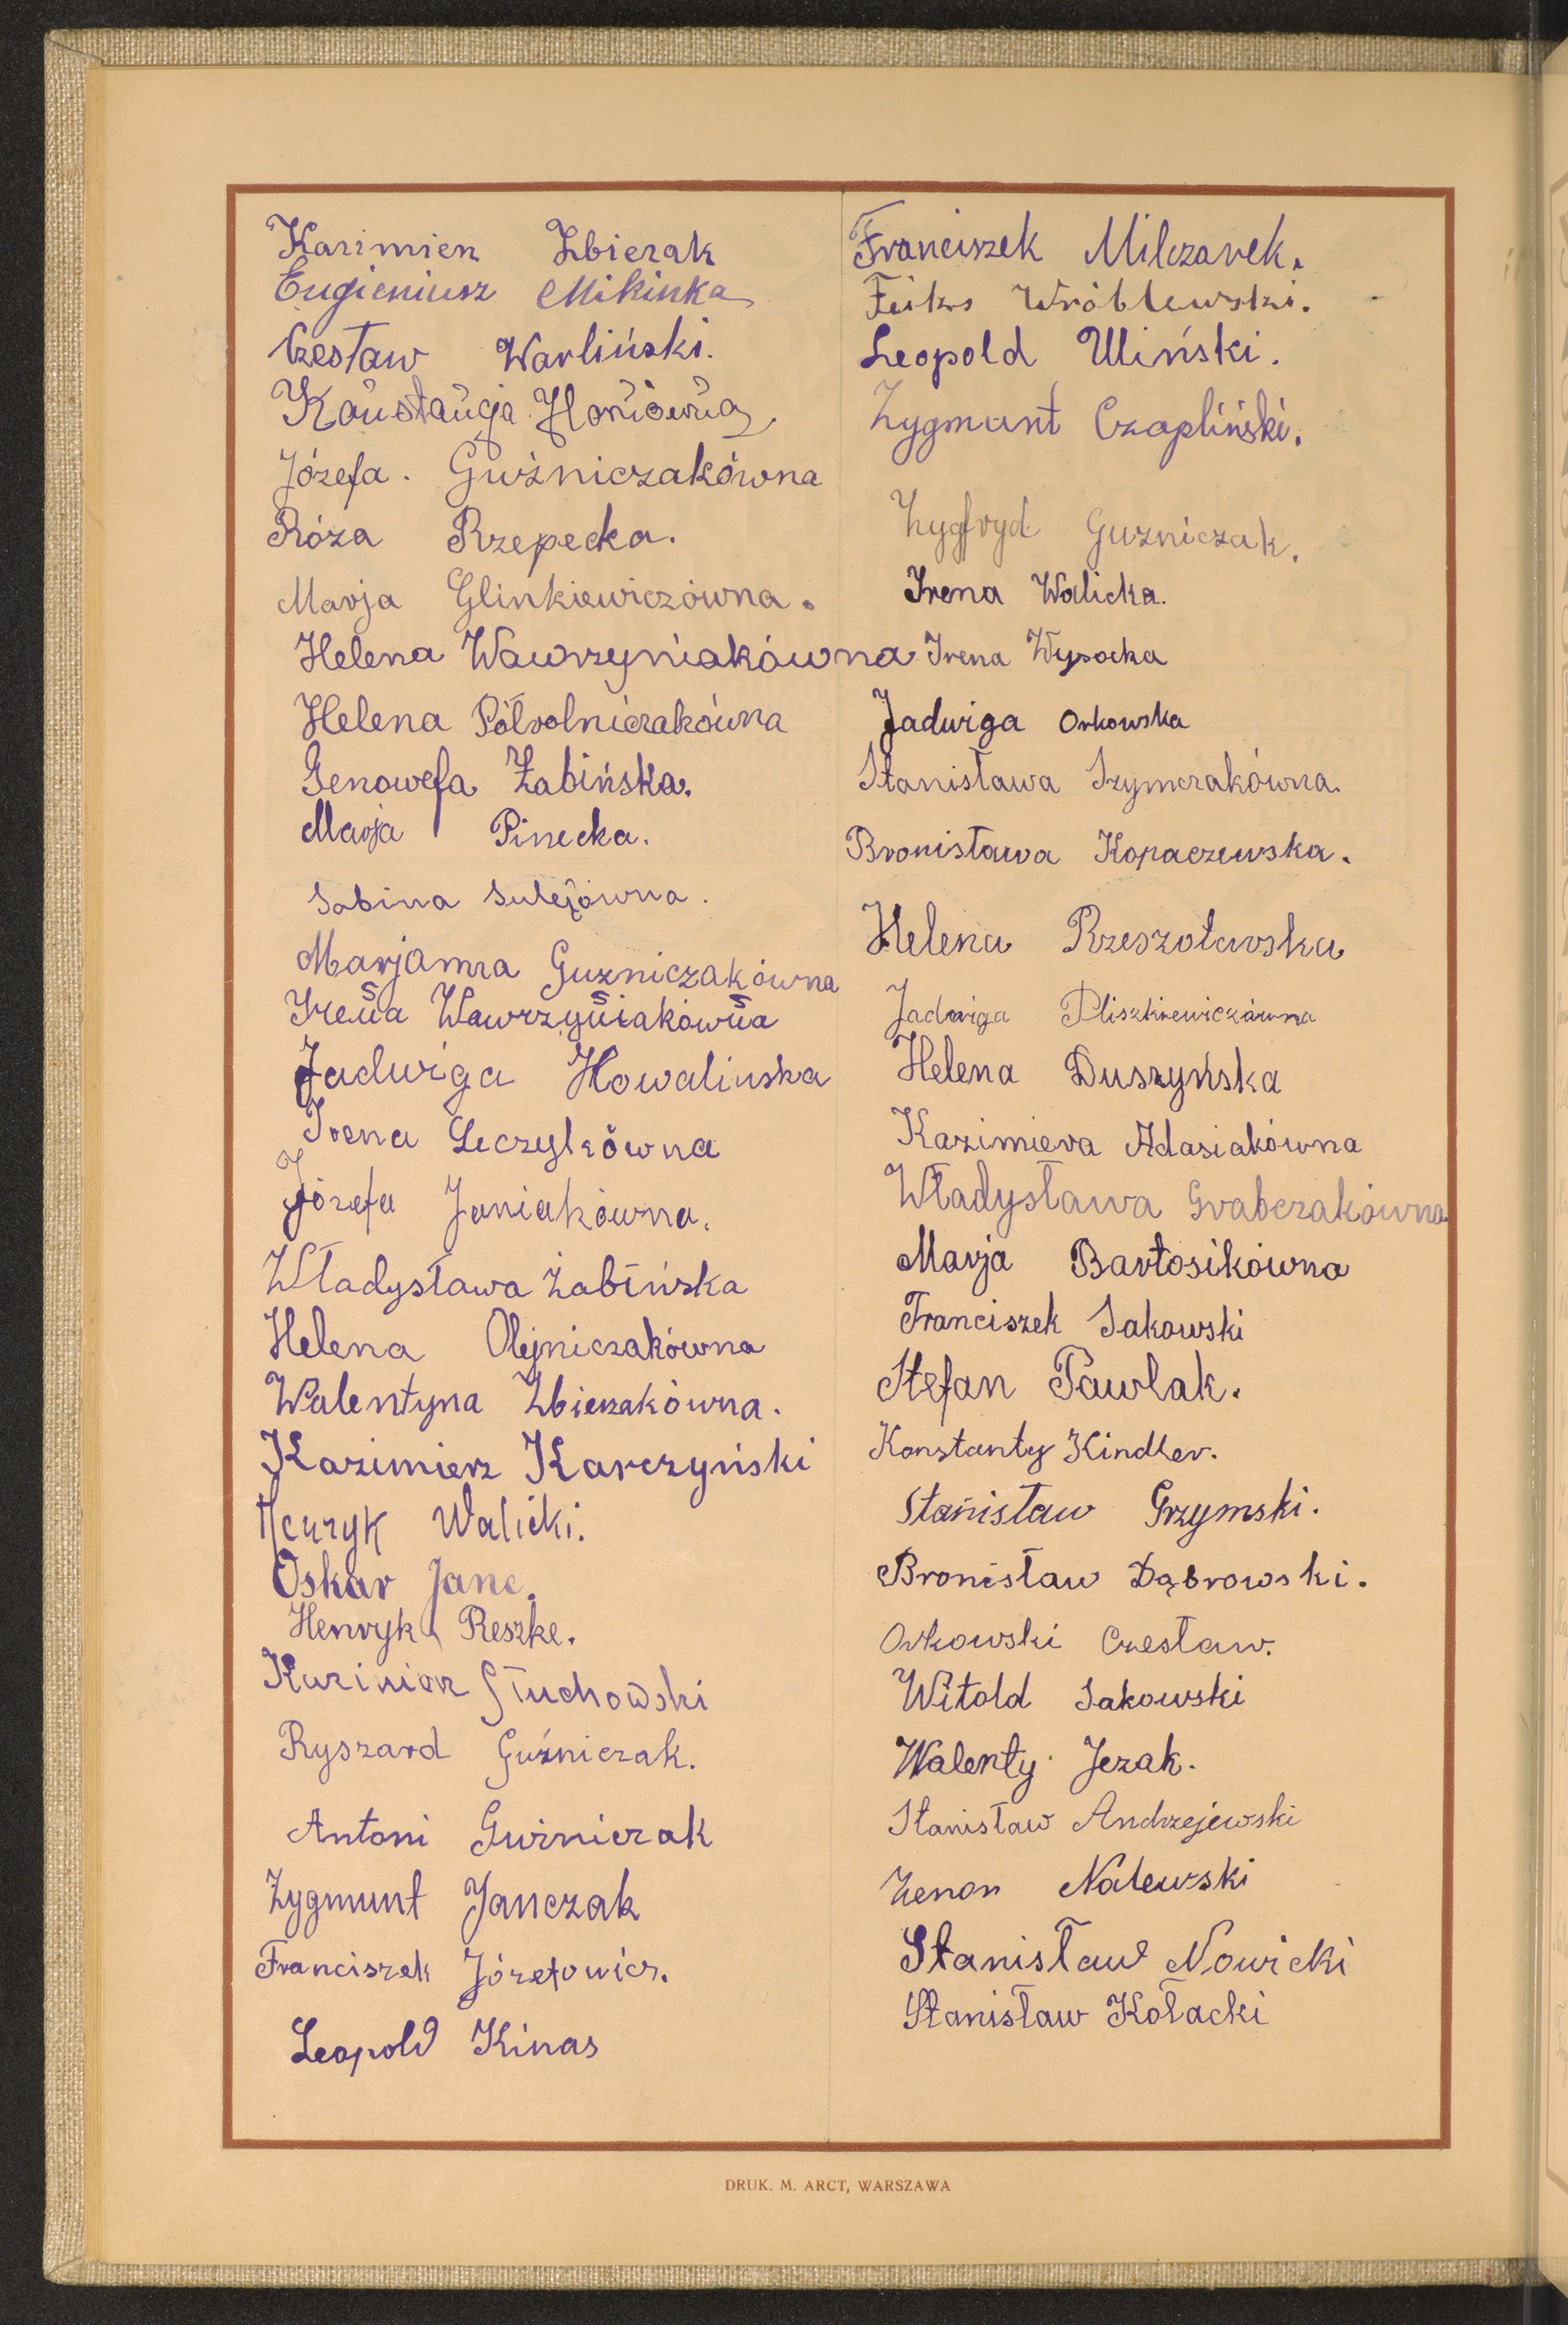 Kazimierz Zbierak
Eugieniusz Mikinka
Czesław Warliński.
Konstancja
Józefa. Guźniczakówna
Róża Rzepecka.
Marja Glinkiewiczówna.
Helena Wawrzyniakówna
Helena Półrolniczakówna
Genowefa Żabińska.
Marja Pinecka.
Sabina Sulejówna.
Marjanna Guzniczakówna
Irena Wawrzyniakówna
Jadwiga Kowalinska
Irena Leczykówna
Józefa Janiakówna.
Władysława Żabińska
Helena Olejniczakówna
Walentyna Zbierzakówna.
Kazimierz Karczyński
Henryk Walicki.
Oskar Janc.
Henryk Reszke.
Kazimierz Słuchowski
Ryszard Guźniczak.
Antoni Guźniczak
Zygmunt Janczak
Franciszek Józefowicz.
Leopold Kinas
Franciszek Milczarek.
Feiks Wróblewski.
Leopold Uliński.
Zygmunt Czapliński.
Zygfryd Guzniczak.
Irena Walicka.
Irena Wysocka
Jadwiga Orkowska
Stanisława Szymczakówna.
Bronisława Kopaczewska.
Helena Rzeszotarska
Jadwiga Pliszkiewiczówna
Helena Duszyńska
Kazimiera Adasiakówna
Władysława Grabczakówna
Marja Bartosikówna
Franciszek Sakowski
Stefan Pawlak.
Konstanty Kindler.
Stanisław Grzymski.
Bronisław Dąbrowski.
Orkowski Czesław.
Witold Sakowski
Walenty Jezak.
Stanisław Andrzejewski
Zenon Nalewski
Stanisław Nowicki
Stanisław Kołacki
DRUK. M. ARCT, WARSZAWA